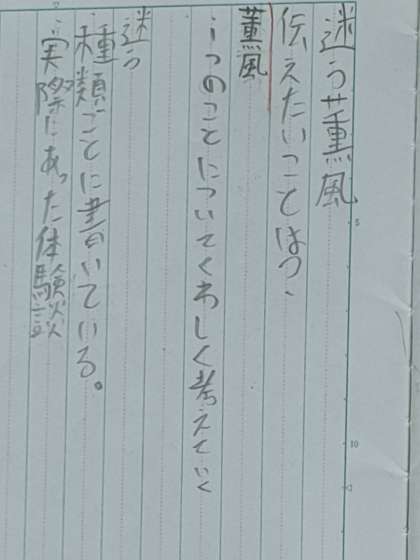 迷う薫風
伝えたいことは?
薫風
一つのことについてくわしく考えていく
迷う
種類ごとに書いている。
実際にあった体験談
5
10